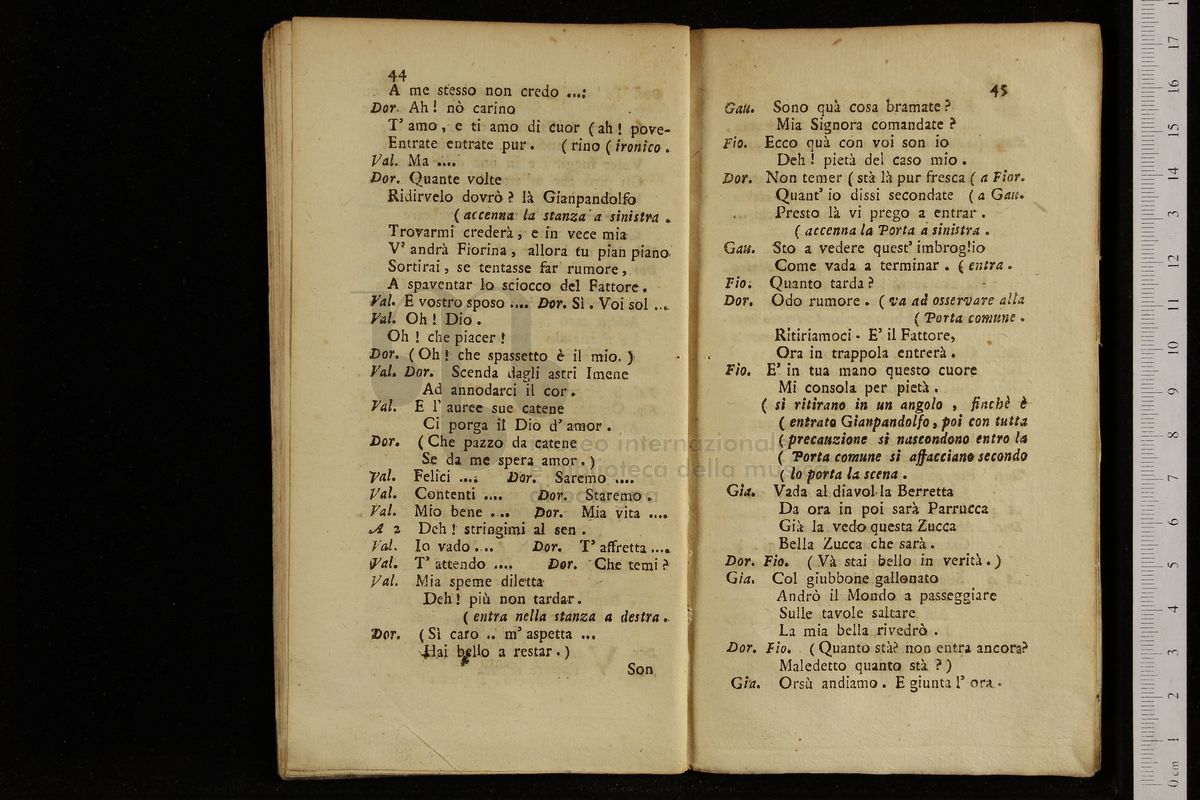 44
A me stesso non credo ....:
Dor. Ah! nò carino
T' amo, e ti amo di cuor (ah! pove-
Entrate entrate pur. (rino (ironico.
Val. Ma ....
Dor. Quante volte
Ridirvelo dovrò? là Gianpandolfo
(accenna la stanza a sinistra.
Trovarmi crederà, e in vece mia
V' andrà Fiorina, allora tu pian piano
Sortirai, se tentasse far rumore,
A spaventar lo sciocco del Fattore.
Val. E vostro sposo .... Dor. Sì. Voi sol ....
Val. Oh! Dio.
Oh! che piacer!
Dor. (Oh! che spassetto è il mio.)
Val. Dor. Scenda dagli astri Imene
Ad annodarci il cor.
Val. E l' auree sue catene
Ci porga il Dio d' amor.
Dor. (Che pazzo da catene
Se da me spera amor.)
Val. Felici .... Dor. Saremo ....
Val. Contenti .... Dor. Staremo.
Val. Mio bene .... Dor. Mia vita ....
A 2 Deh! stringimi al sen.
Val. Io vado.... Dor. T' affretta ....
Val. T' attendo .... Dor. Che temi?
Val. Mia speme diletta
Deh! più non tardar.
(entra nella stanza a destra.
Dor. (Sì caro .. m' aspetta ...
Hai bello a restar.)
Son
45
Gau. Sono quà cosa bramate?
Mia Signora comandate?
Fio. Ecco quà con voi son io
Deh! pietà del caso mio.
Dor. Non temer (stà là pur fresca (a Fior.
Quant' io dissi secondate (a Gau.
Presto là vi prego a entrar.
(accenna la Porta a sinistra.
Gau. Sto a vedere quest' imbroglio
Come vada a terminar. (entra.
Fio. Quanto tarda?
Dor. Odo rumore. (va ad osservare alla
(Porta comune.
Ritiriamoci. E' il Fattore,
Ora in trappola entrerà.
Fio. E' in tua mano questo cuore
Mi consola per pietà.
(si ritirano in un angolo, finchè è
(entrato Gianpandolfo, poi con tutta
(precauzione si nascondono entro la
(Porta comune si affacciano secondo
(lo porta la scena.
Gia. Vada al diavol la Berretta
Da ora in poi sarà Parrucca
Già la vedo questa Zucca
Bella Zucca che sarà.
Dor. Fio. (Và stai bello in verità.)
Gia. Col giubbone gallonato
Andrò il Mondo a passeggiare
Sulle tavole saltare
La mia bella rivedrò.
Dor. Fio. (Quanto stà? non entra ancora?
Maledetto quanto stà?)
Gia. Orsù andiamo. E giunta l' ora.
museo internazionale
e biblioteca della musica